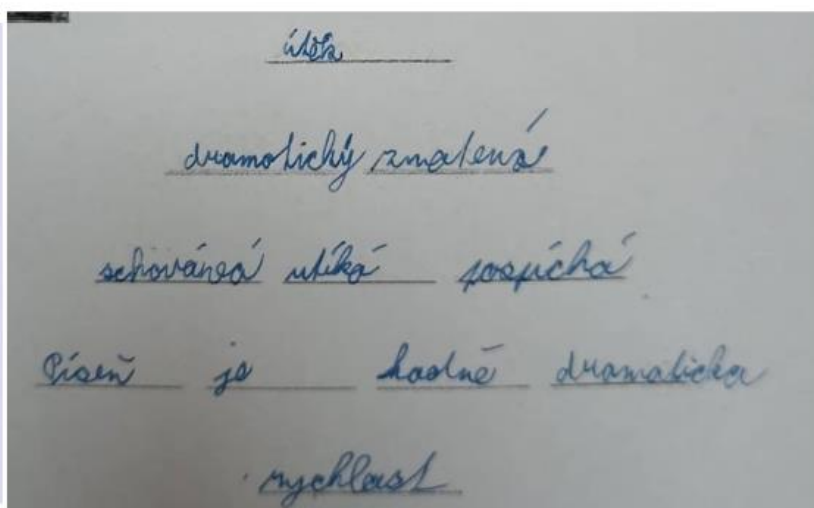 útěk
dramatický zmatená
schovává utíká pospíchá
Píseň je hodně dramaticka
rychlost